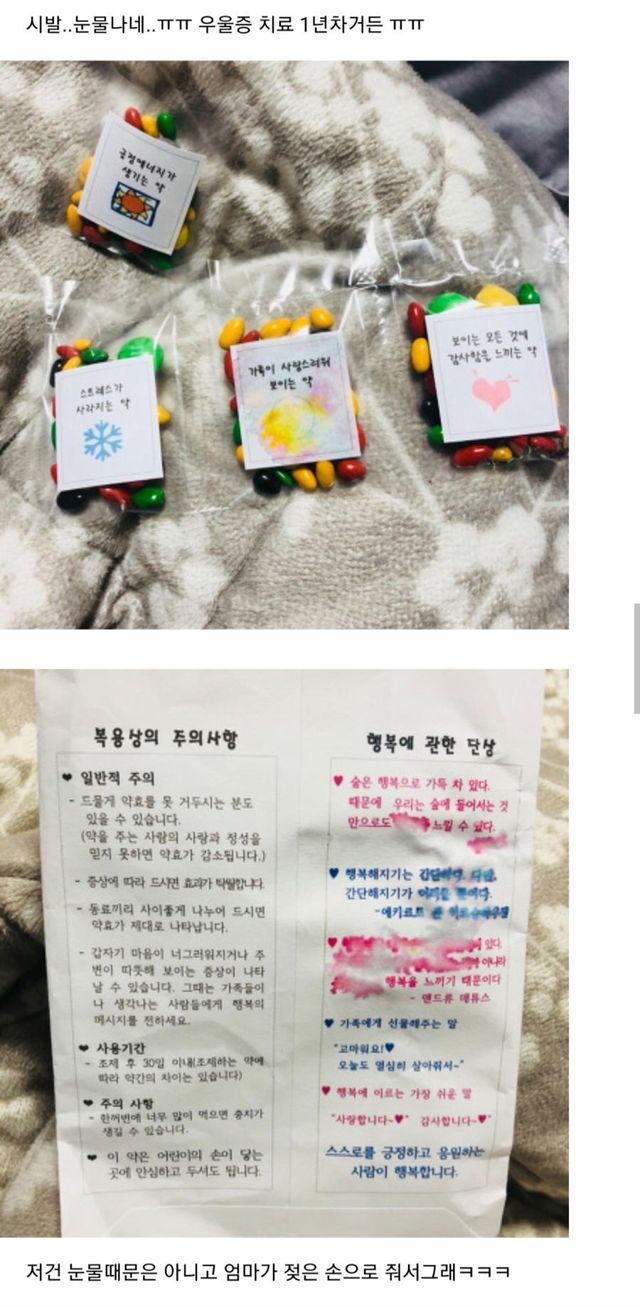 시발..눈물나네..ㅠㅠ 우울증 치료 1년차거든 ㅠㅠ
긍정에너지가
생기는 약
스트레스가
사라지는 약
가족이 사랑스러워
보이는 약
보이는 모든 것에
감사함을 느끼는 약
복용상의 주의사항
❤ 일반적 주의
- 드물게 약효를 못 거두시는 분도
있을 수 있습니다.
(약을 주는 사람의 사랑과 정성을
믿지 못하면 약효가 감소됩니다.)
- 증상에 따라 드시면 효과가 탁월합니다.
- 동료끼리 사이좋게 나누어 드시면
약효가 제대로 나타납니다.
- 갑자기 마음이 너그러워지거나 주
변이 따뜻해 보이는 증상이 나타
날 수 있습니다. 그때는 가족들이
나 생각나는 사람들에게 행복의
메시지를 전하세요.
❤ 사용기간
- 조제 후 30일 이내(조제하는 약에
따라 약간의 차이는 있습니다)
❤ 주의 사항
- 한꺼번에 너무 많이 먹으면 충치가
생길 수 있습니다.
❤ 이 약은 어린이의 손이 닿는
곳에 안심하고 두셔도 됩니다.
행복에 관한 단상
♥ 숲은 행복으로 가득 차 있다.
때문에 우리는 숲에 들어서는 것
만으로도 느낄 수 있다.
♥ 행복해지기는 간단하다. 다만,
간단해지기가
-에카르트
♥ 있다.
아니라
행복을 느끼기 때문이다
- 앤드류 매튜스
♥ 가족에게 선물해주는 말
"고마워요!♥
오늘도 열심히 살아줘서~"
♥ 행복에 이르는 가장 쉬운 말
"사랑합니다~♥" 감사합니다~♥"
스스로를 긍정하고 응원하는
사람이 행복합니다.
저건 눈물때문은 아니고 엄마가 젖은 손으로 줘서그래ㅋㅋㅋ